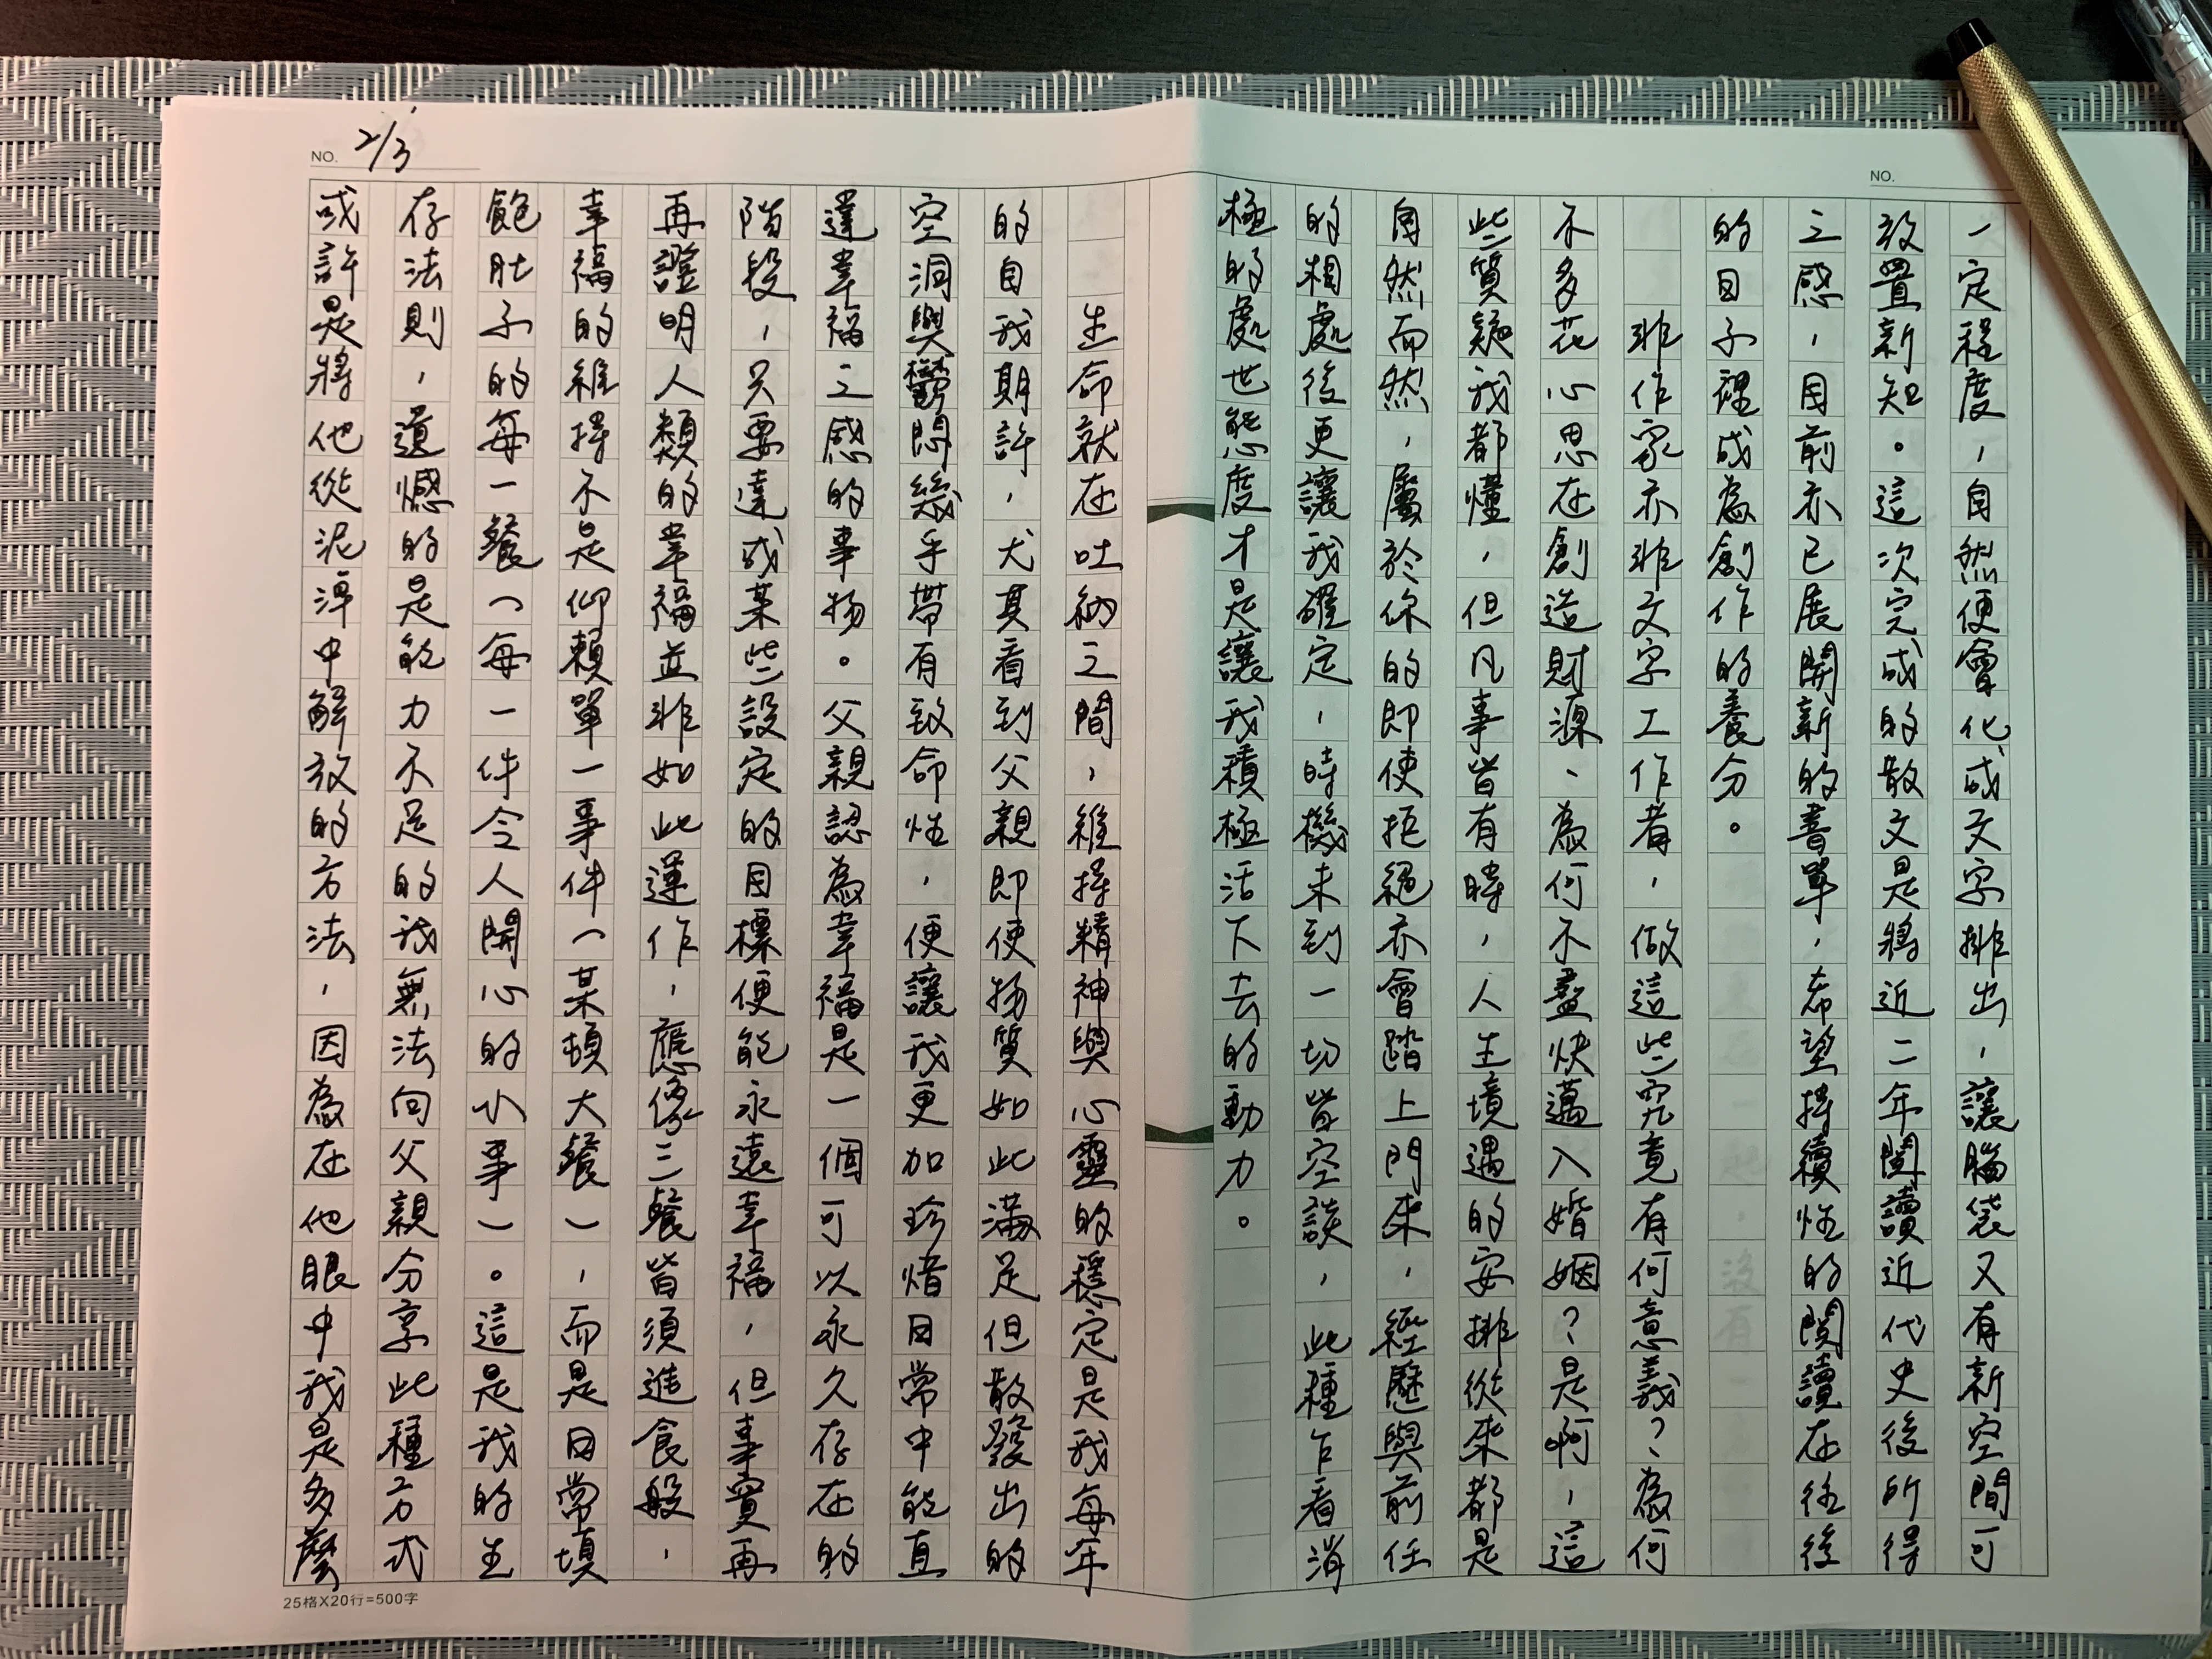 NO.
一定程度，自然便會化成文字排出，讓腦袋又有新空間可
放置新知。這次完成的散文是將近二年閱讀近代史後所得
之感，目前亦已展開新的書單，希望持續性的閱讀在往後
的日子裡成為創作的養分。
非作家亦非文字工作者，做這些究竟有何意義？為何
不多花心思在創造財源、為何不盡快邁入婚姻？是啊，這
些質疑我都懂，但凡事皆有時，人生境遇的安排從來都是
自然而然，屬於你的即使拒絕亦會踏上門來，經歷與前任
的相處後更讓我確定，時機未到一切皆空談，此種乍看消
極的處世態度才是讓我積極活下去的動力。
NO. 2/3
生命就在吐納之間，維持精神與心靈的穩定是我每年
的自我期許，尤其看到父親即使物質如此滿足但散發出的
空洞與鬱悶幾乎帶有致命性，便讓我更加珍惜日常中能直
達幸福之感的事物。父親認為幸福是一個可以永久存在的
階段，只要達成某些設定的目標便能永遠幸福，但事實再
再證明人類的幸福並非如此運作，應像三餐皆須進食般，
幸福的維持不是仰賴單一事件（某頓大餐），而是日常填
飽肚子的每一餐（每一件令人開心的小事）。這是我的生
存法則，遺憾的是能力不足的我無法向父親分享此種方式
或許是將他從泥淖中解放的方法，因為在他眼中我是多麼
25格X20行=500字